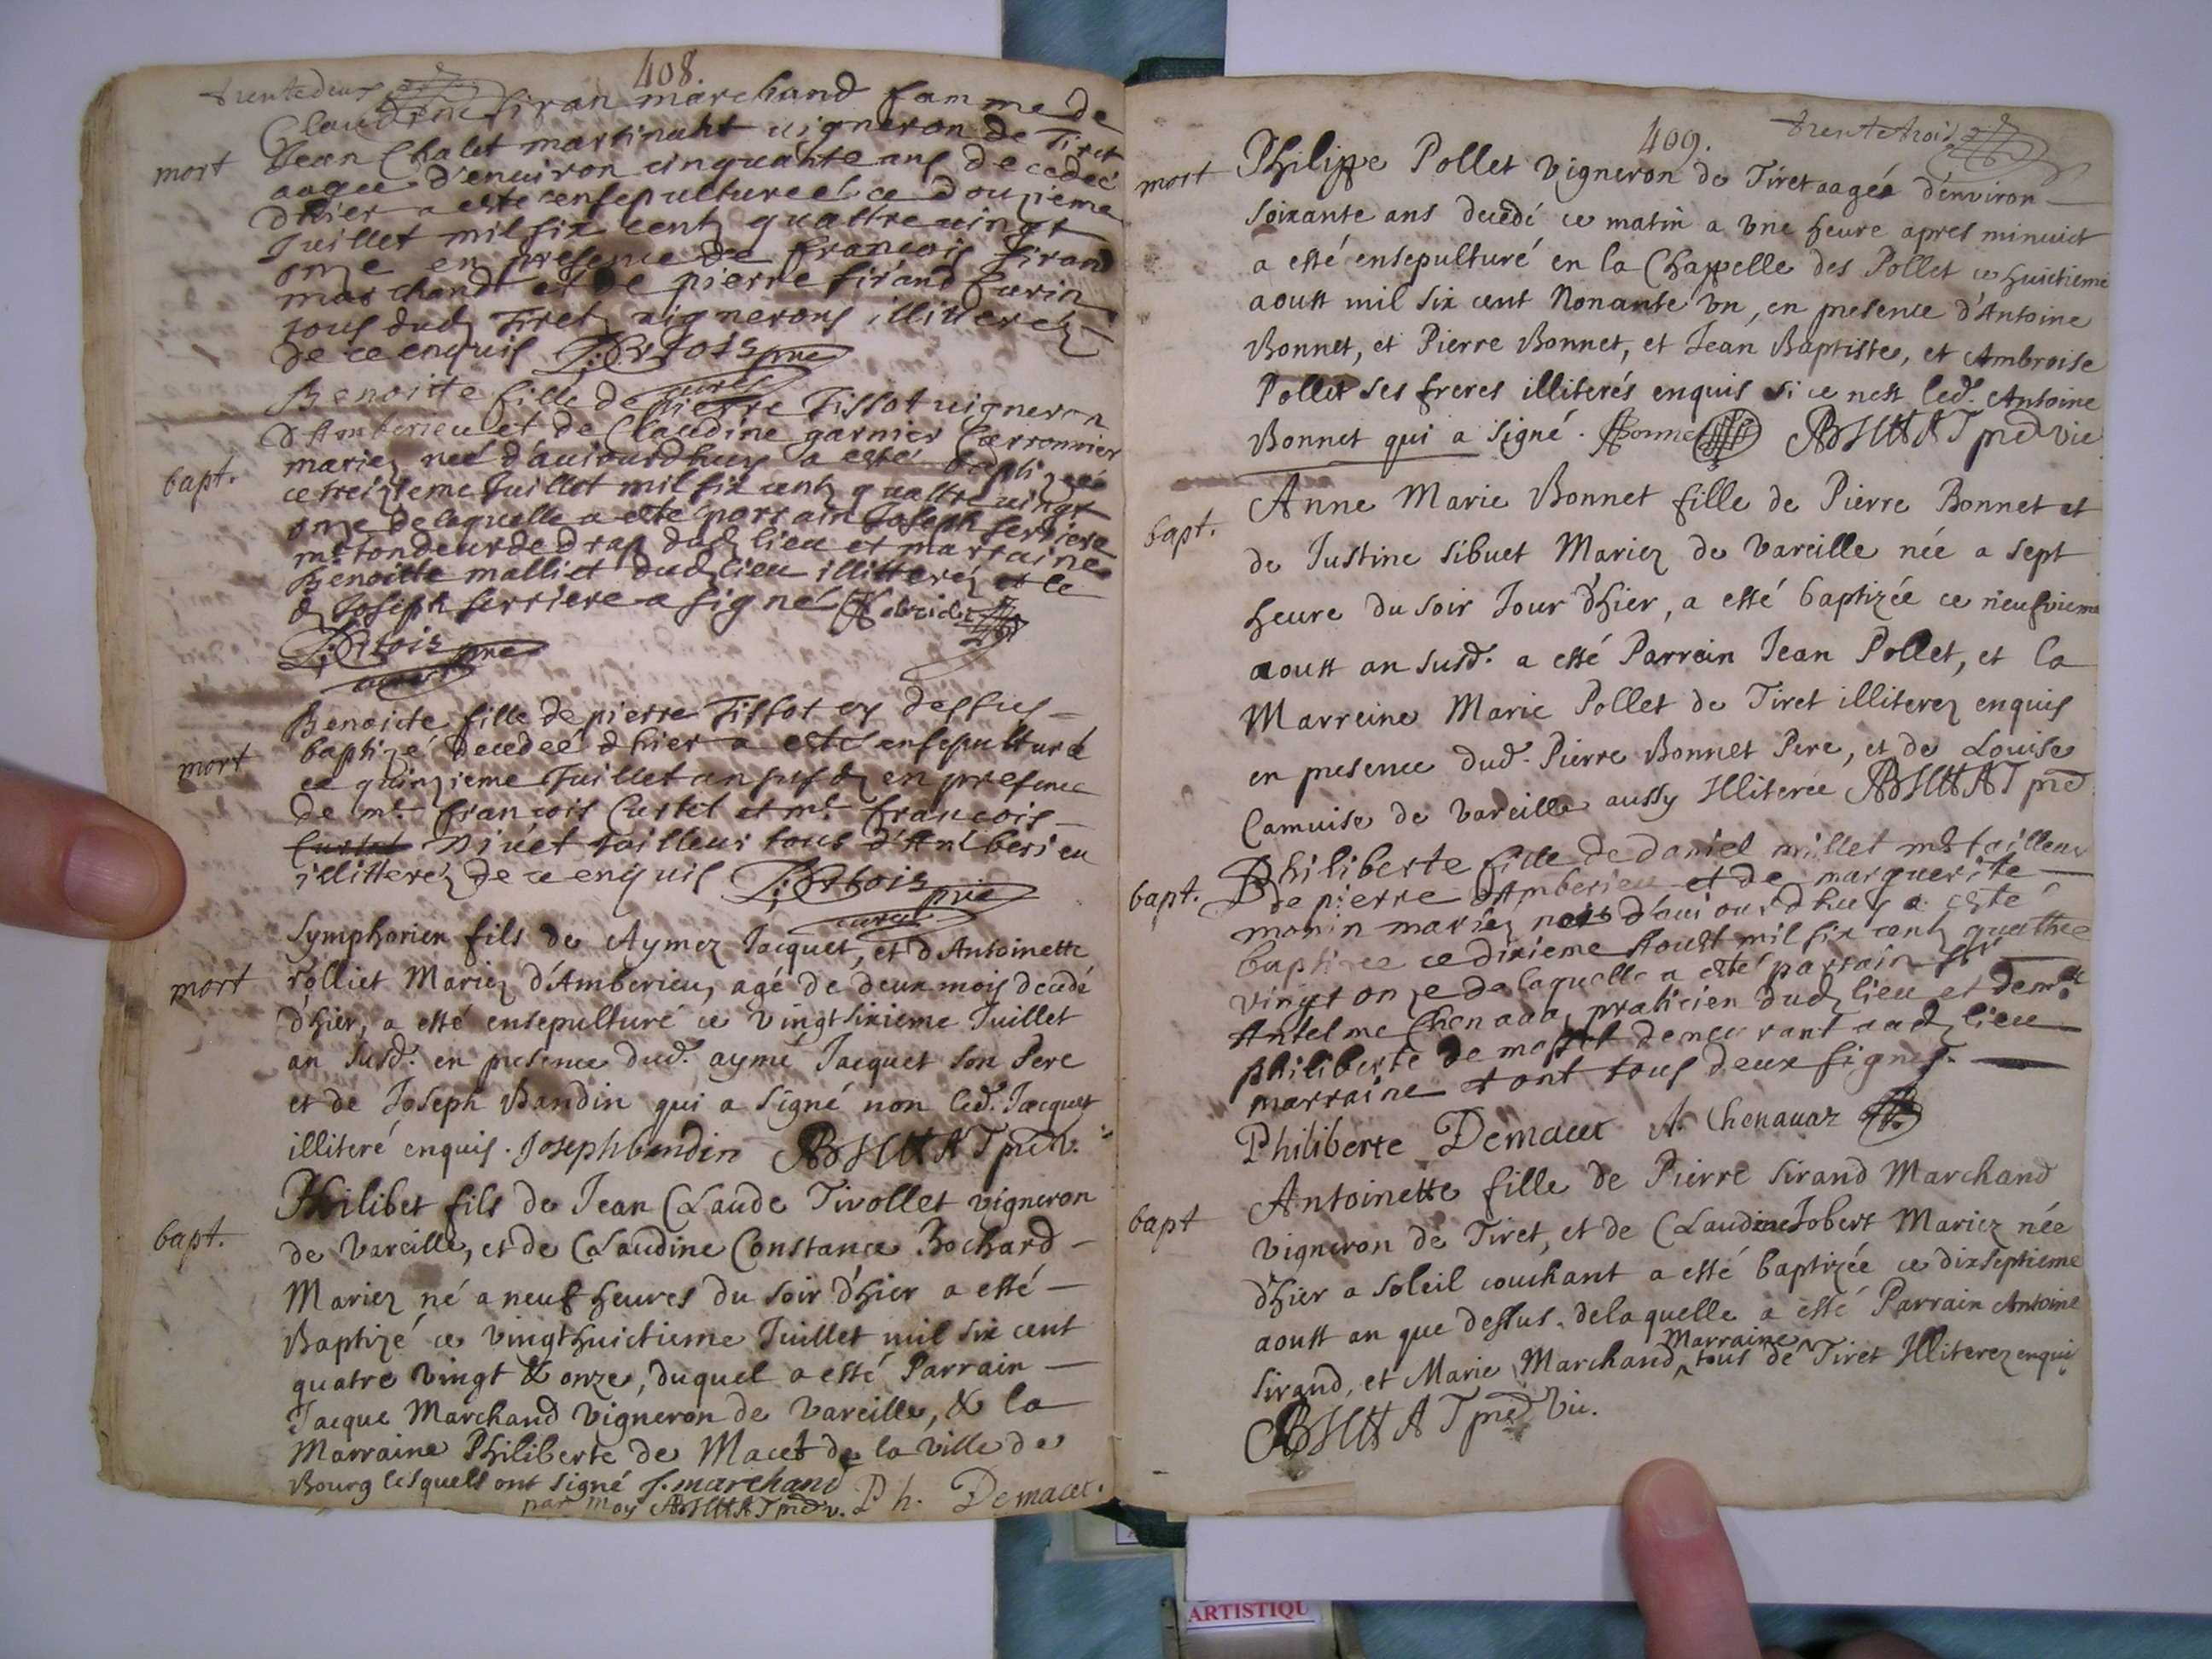 408.
trentedeux
Claudine Siran marchand famme de
mort
Jean Chalet martinaht uigneron de Tiret
aagee d'enuiron cinquante ans decedeé
d'hier a este ensepultureé ce douzieme
Juillet mil six centz quattre uingt
onze en presence de francois sirand
marchand et de pierre sirand
tous dudz Tiret uignerons illitterez
de ce enquis
Benoitte fille de pierre Tissot uigneron
d'Amberieu et de Claudine garnier
mariez neé d'auiourdhuy a esté baptizeé
bapt.
ce treizieme Juillet mil six centz quattre uingt
onze de laquelle a esté parrain Joseph serriere
mr. tondeur de drap dudz lieu et marraine
Benoitte malliet dudz lieu illitterez et le
dz Joseph serriere a signé
Benoicte fille de pierre Tissot cy dessus
baptizé decedeé d'hier a esté ensepulturé
mort
ce quinzieme Juillet an susdz en presence
de mr. francois Curtet et mr. francois
Curtet niuet tailleur tous d'Amberieu
illitterez de ce enquis
Symphorien fils de Aymez Jacquet, et d'Antoinette
mort
rolliet Mariez d'Amberieu, agé de deux mois decedé
d'hier, a esté ensepulturé ce vingt sixieme Juillet
an susd. en presence dud. aymé Jacquet son Pere
et de Joseph Bandin qui a signé non led. Jacquet
illiteré enquis. Joseph bandin
Philibet fils de Jean Claude Tivollet vigneron
bapt.
de Vareille, et de Claudine Constance Bochard
Mariez né a neuf heures du soir d'hier a esté
Baptizé ce vingthuictieme Juillet mil six cent
quatre vingt & onze, duquel a esté Parrain
Jacque Marchand Vigneron de Vareille, & la
Marraine Philiberte de Macet de la ville de
Bourg lesquels ont signé J. marchand Ph. Demacet.
par moy
409.
trentetrois
mort
Philippe Pollet vigneron de Tiret aagée d'environ
soixante ans decedé ce matin a vne heure apres minuict
a esté ensepulturé en la Chappelle des Pollet ce huictieme
aoust mil six cent Nonante vn, en presence d'Antoine
Bonnet, et Pierre Bonnet, et Jean Baptiste, et Ambroise
Pollet ses freres illiterés enquis si ce nest led. Antoine
Bonnet qui a signé.
Anne Marie Bonnet fille de Pierre Bonnet et
bapt.
de Justine sibuet Mariez de Vareille née a sept
heure du soir Jour d'hier, a esté baptizée ce neufvieme
aoust an susd. a esté Parrain Jean Pollet, et la
Marreine Marie Pollet de Tiret illiterez enquis
en presence dud. Pierre Bonnet Pere, et de Louise
Camuise de Vareille aussy Illiterée
Philiberte fille de daniel millet mr. tailleur
bapt.
de pierre d'Amberieu et de marguerite
monin mariez d'auiourdhuy a esté
baptizee ce dixieme Aoust mil six centz quattre
vingt onze de laquelle a esté parrain sr
Antelme Chenauaz praticien dudz lieu et demlle
philiberte de demeurant audz lieu
marraine tous deux signes.
Philiberte Demacet A. Chenauaz
Antoinette fille de Pierre Sirand Marchand
bapt
Vigneron de Tiret, et de Claudine Jobert Mariez née
d'hier a soleil couchant a esté baptizée ce dixseptieme
aoust an que dessus. de laquelle a esté Parrain Antoine
Marraine
Sirand, et Marie Marchand tous de Tiret Illiterez enquis
ARTISTIQU